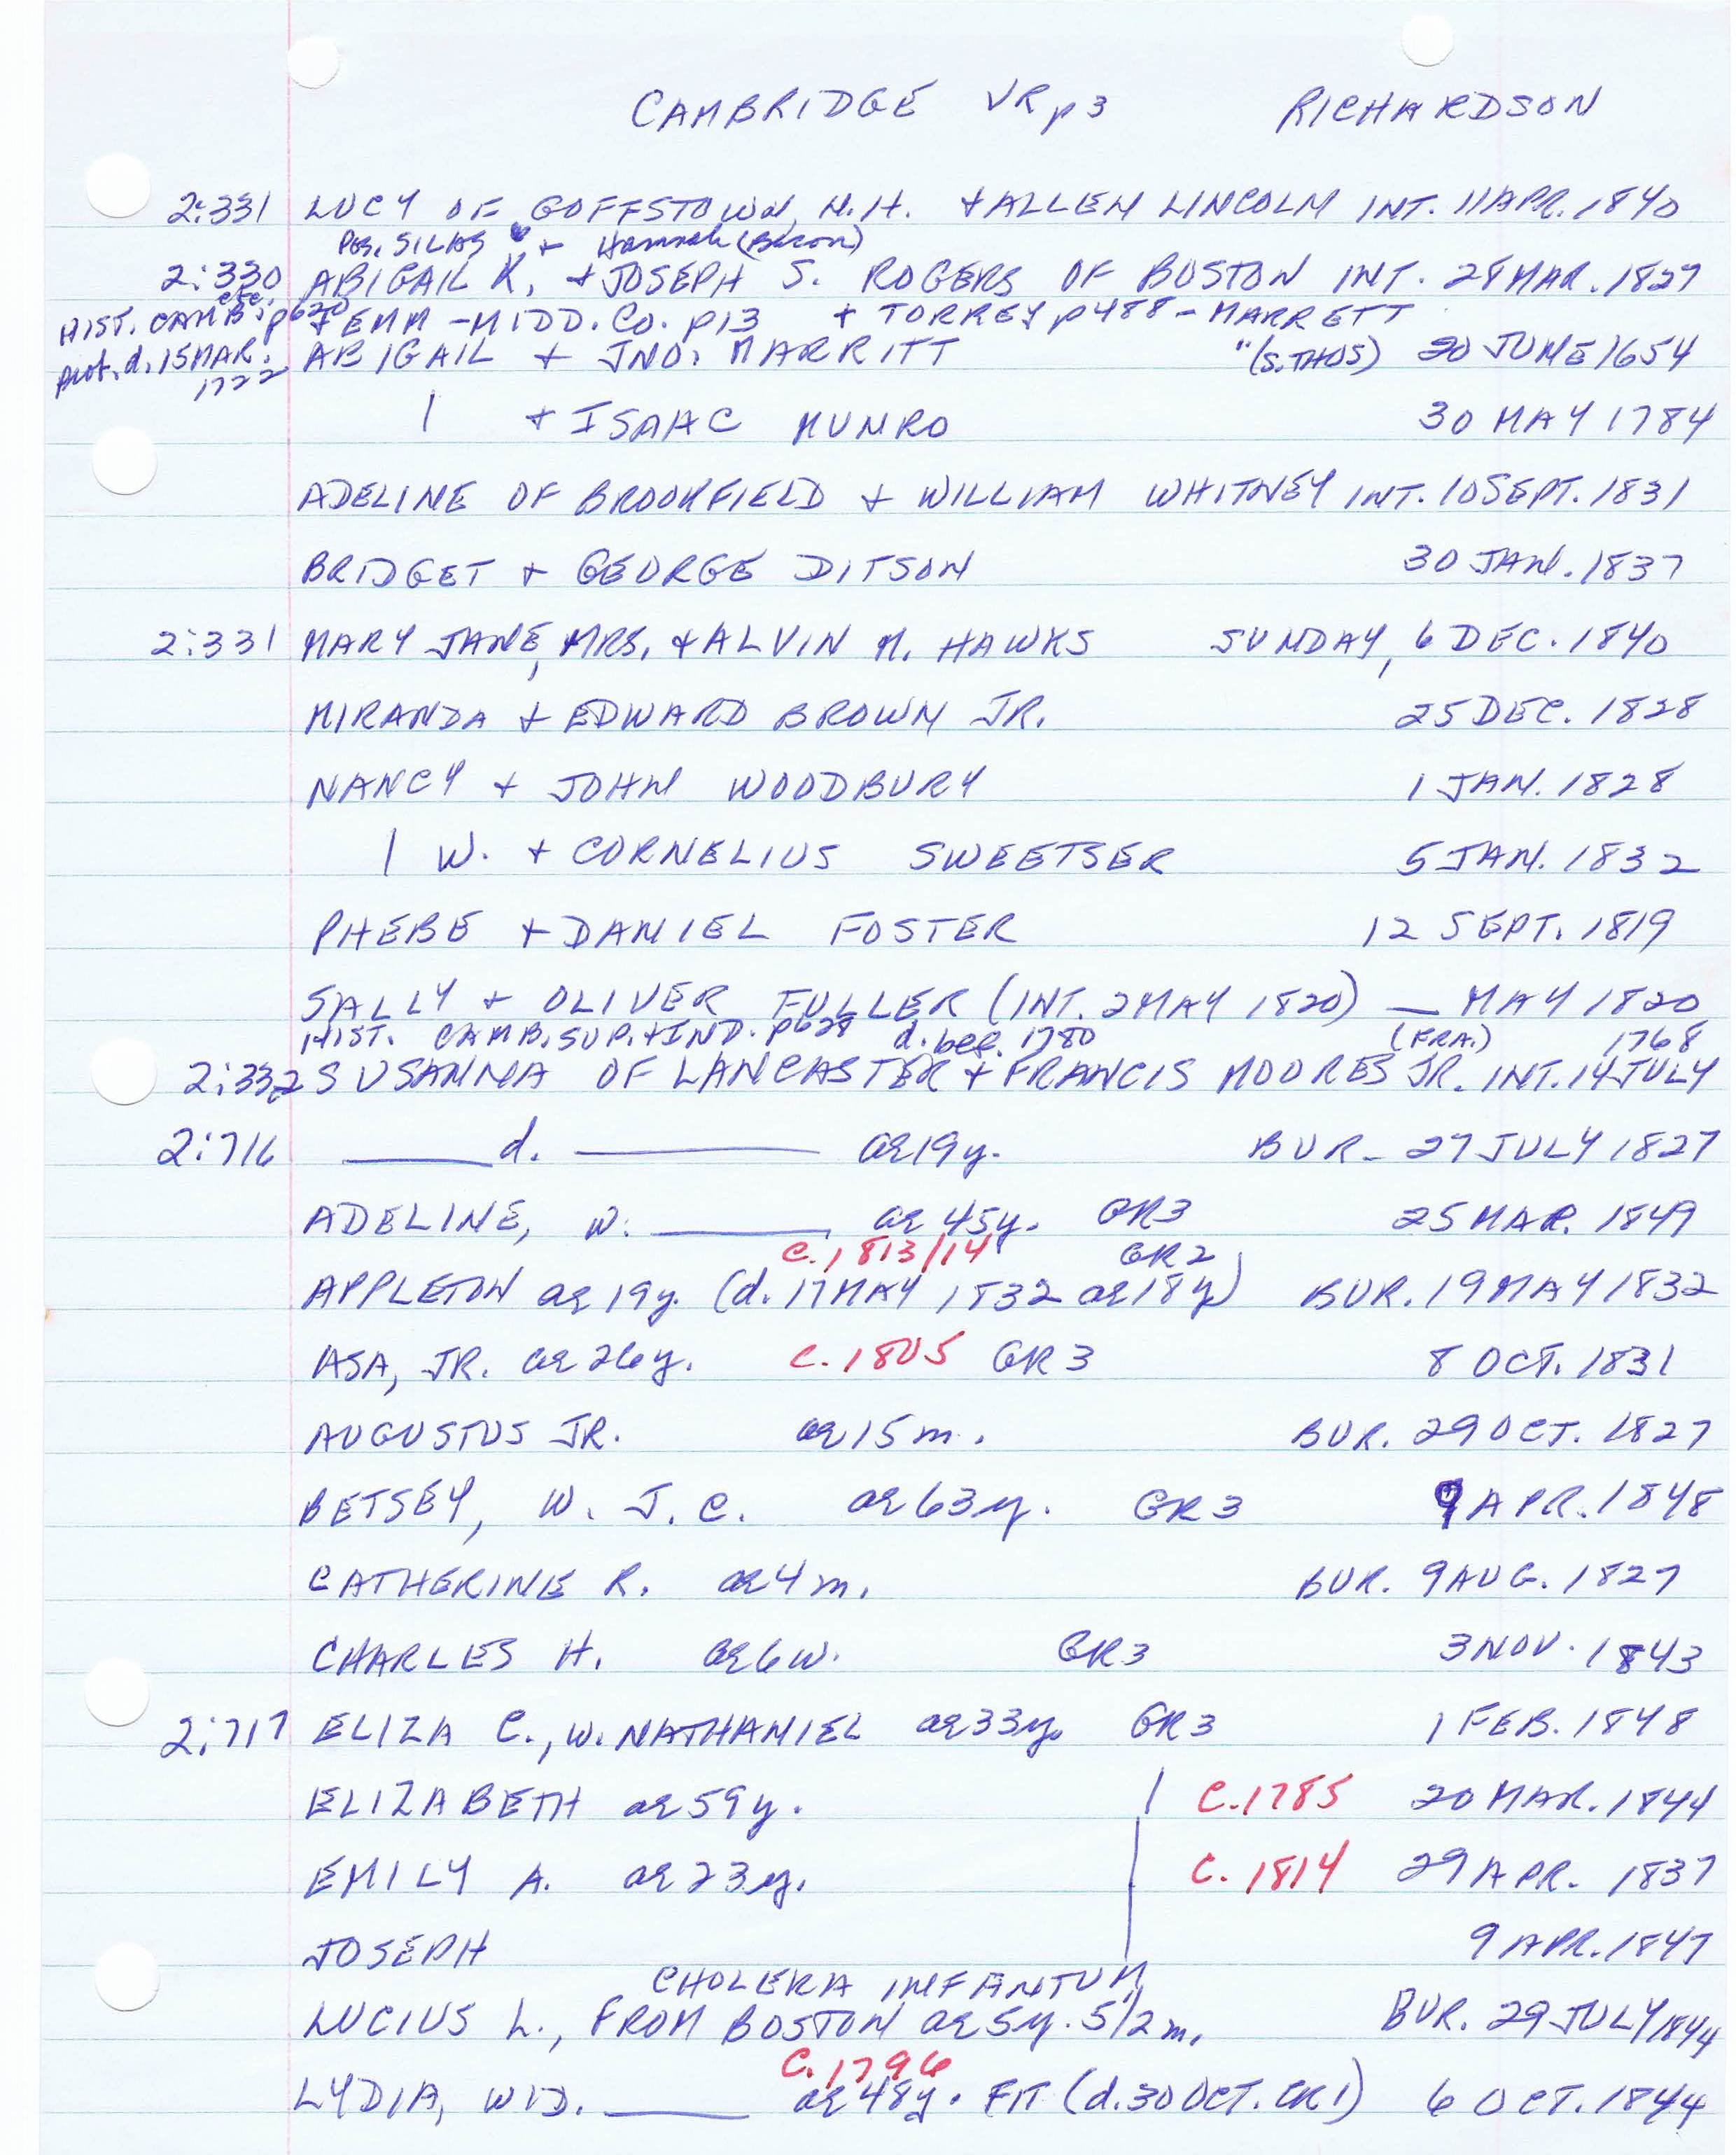 CAMBRIDGE VR p3 RICHARDSON
2:331 LUCY OF GOFFSTOWN, N.H. + ALLEN LINCOLN INT. 11 APR. 1840
Pos. SILAS + Hannah (Bacon)
2:330 ABIGAIL K. + JOSEPH S. ROGERS OF BOSTON INT. 28 MAR. 1827
HIST. CAMB. etc. p620 + EMM - MIDD. CO. p13 + TORREY p488 - MARRETT
prob. d. 15 MAR. 1722 ABIGAIL + JNO. MARRITT " (S. THOS) 20 JUNE 1654
| + ISAAC MUNRO 30 MAY 1784
ADELINE OF BROOKFIELD + WILLIAM WHITNEY INT. 10 SEPT. 1831
BRIDGET + GEORGE DITSON 30 JAN. 1837
2:331 MARY JANE, MRS. + ALVIN M. HAWKS SUNDAY, 6 DEC. 1840
MIRANDA + EDWARD BROWN JR. 25 DEC. 1828
NANCY + JOHN WOODBURY 1 JAN. 1828
| W. + CORNELIUS SWEETSER 5 JAN. 1832
PHEBE + DANIEL FOSTER 12 SEPT. 1819
SALLY + OLIVER FULLER (INT. 2 MAY 1820) — MAY 1820
HIST. CAMB. SUP. + IND. p628 d. bef. 1780 (FRA.) 1768
2:332 SUSANNA OF LANCASTER + FRANCIS MOORES JR. INT. 14 JULY
2:716 ____ d. ____ ae 19y. BUR. 27 JULY 1827
ADELINE, W. ____ ae 45y. GR3 25 MAR. 1849
C. 1813/14 GR2
APPLETON ae 19y. (d. 17 MAY 1832 ae 18y) BUR. 19 MAY 1832
ASA, JR. ae 26y. C. 1805 GR3 8 OCT. 1831
AUGUSTUS JR. ae 15 m. BUR. 29 OCT. 1827
BETSEY, W. J. C. ae 63y. GR3 9 APR. 1848
CATHERINE R. ae 4 m. BUR. 9 AUG. 1827
CHARLES H. ae 6w. GR3 3 NOV. 1843
2:717 ELIZA C., W. NATHANIEL ae 33y. GR3 1 FEB. 1848
ELIZABETH ae 59y. | C. 1785 20 MAR. 1844
EMILY A. ae 23y. | C. 1814 29 APR. 1837
JOSEPH | 9 APR. 1847
CHOLERA INFANTUM
LUCIUS L., FROM BOSTON ae 5y. 5 1/2 m. BUR. 29 JULY 1844
C. 1796
LYDIA, WID. ____ ae 48y. FIT (d. 30 OCT. CR1) 6 OCT. 1844